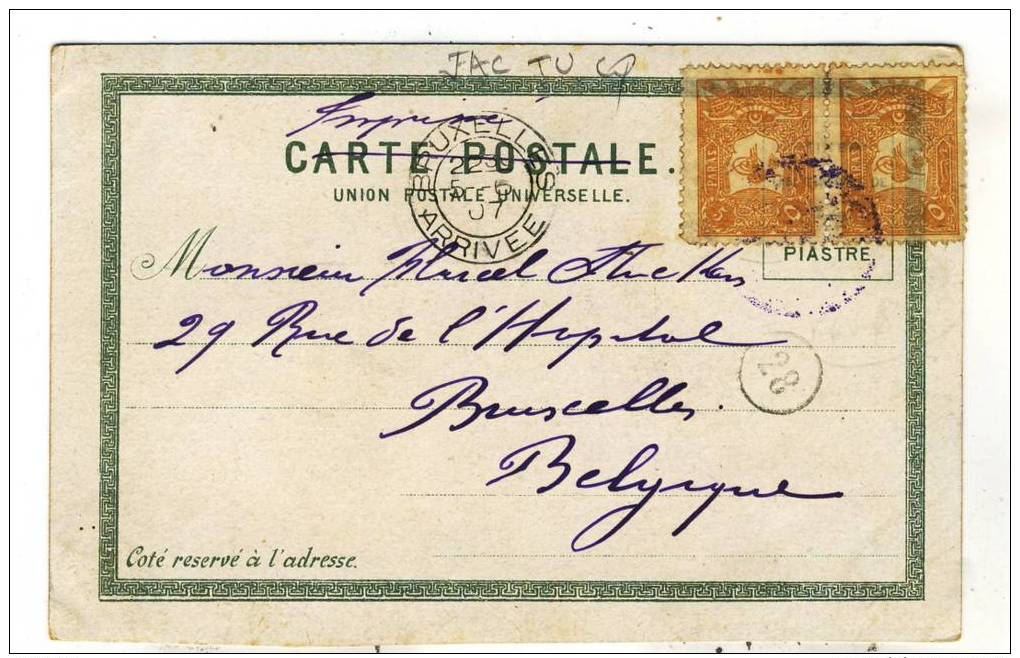 JAC TU
Imprimé
CARTE POSTALE.
UNION POSTALE UNIVERSELLE.
BRUXELLES
5-6
07
ARRIVEE
PARAS 5
PARAS 5
PIASTRE
Monsieur Marcel
29 Rue de l'Hopital
Bruxelles.
Belgique
28
Coté reservé à l'adresse.